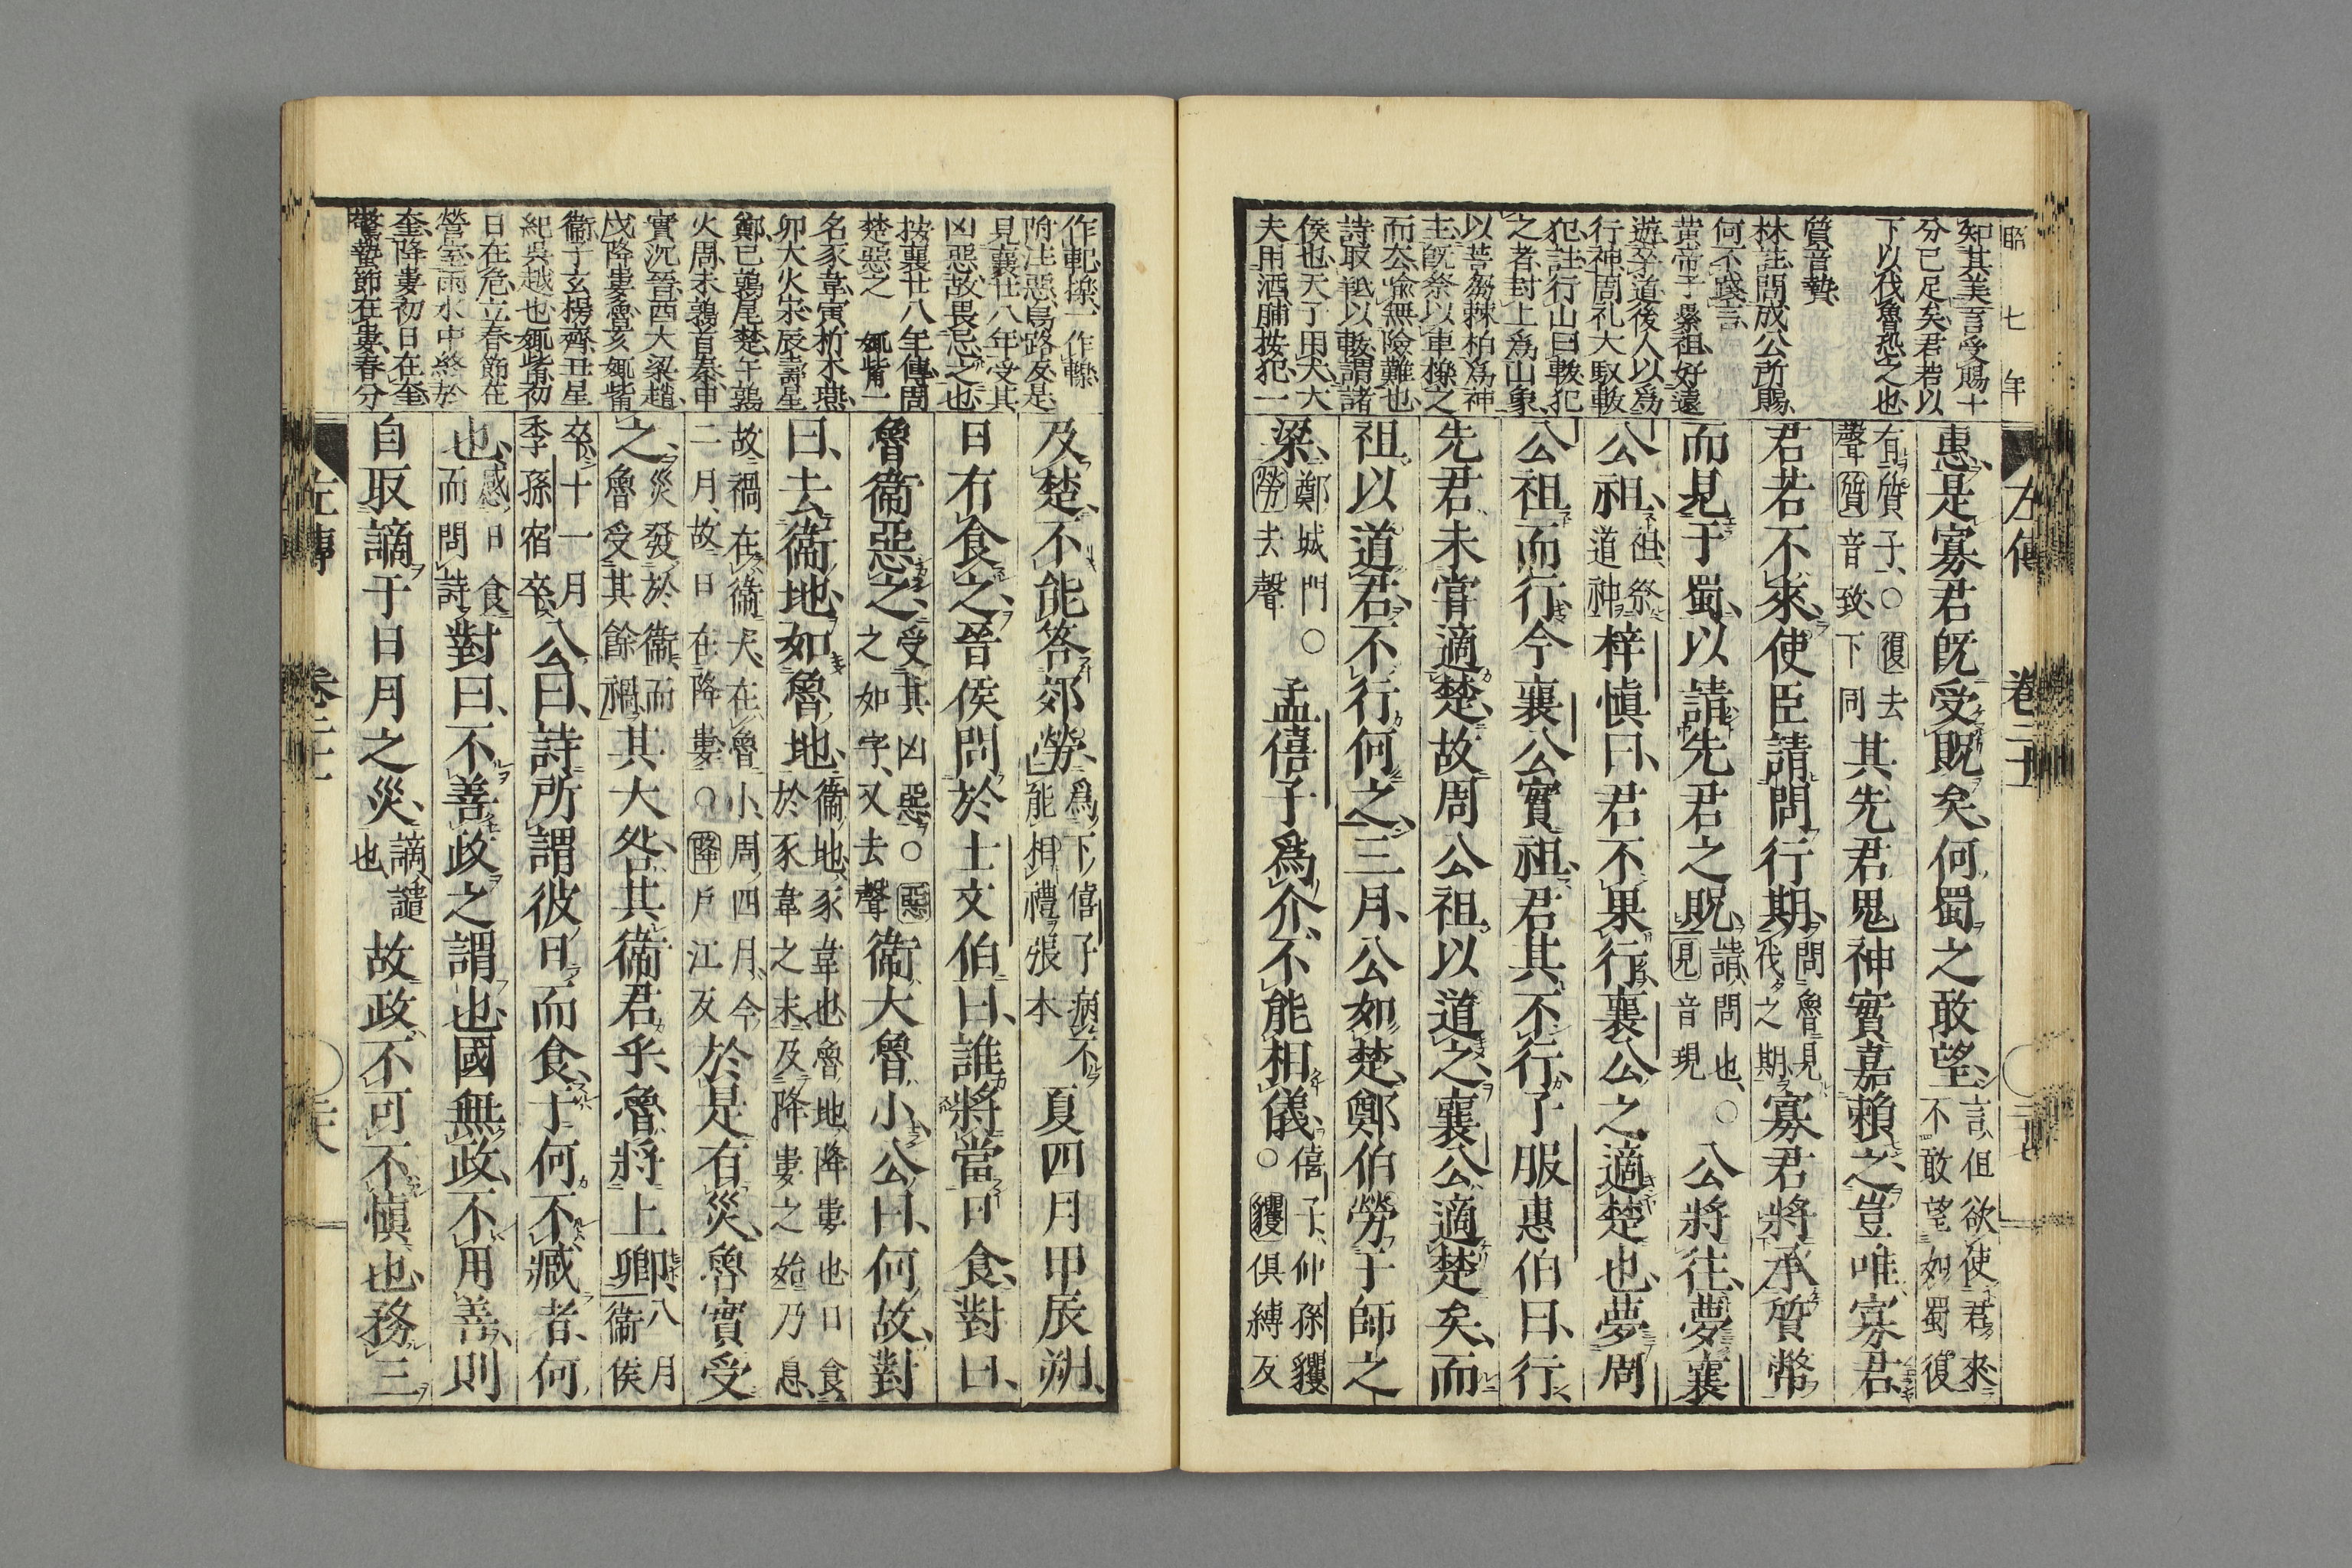 昭 七 年
左傳
知其美言受賜十
分已足矣君若以
下以伐魯恐之也
質音贄
林註問成公所賜
何不踐言
黄帝子纍祖好遠
遊卒道後人以爲
行神周礼大馭軷
犯註行山曰軷犯
之者封土爲山象
以菩芻棘柏爲神
主既祭以車轢之
而去喩無險難也
詩取羝以軷謂諸
侯也天子用犬大
夫用酒脯按犯一
惠是寡君既受貺矣何蜀之敢望言但欲使君來不敢望如蜀復
有質子〇復去聲質音致下同其先君鬼神實嘉賴之豈唯寡君
君若不來使臣請問行期問魯見伐之期寡君將承質幣
而見于蜀以請先君之貺請問也〇見音現公將往夢襄
公祖祖祭道神梓愼曰君不果行襄公之適楚也夢周
公祖而行今襄公實祖君其不行子服惠伯曰行
先君未嘗適楚故周公祖以道之襄公適楚矣而
祖以道君不行何之三月公如楚鄭伯勞于師之
梁鄭城門〇勞去聲孟僖子爲介不能相儀〇僖子仲孫貜貜俱縛反
作軋轢一作轢
附注惡烏路反是
見襄廿八年受其
凶惡故畏忌之也
按襄廿八年傳周
楚惡之 娵訾一
名豕韋寅析木燕
卯大火宋辰壽星
鄭巳鶉尾楚午鶉
火周未鶉首秦申
實沉晉酉大梁趙
戌降婁魯亥娵訾
衞子玄枵齊丑星
紀吳越也娵訾初
日在危立春節在
營室雨水中終於
奎降婁初日在奎
驚蟄節在婁春分
及楚不能答郊勞爲下僖子病不能相禮張本夏四月甲辰朔
日有食之晉侯問於士文伯曰誰將當日食對曰
魯衞惡之受其凶惡〇惡之如字又去聲衞大魯小公曰何故對
曰去衞地如魯地衞地豕韋也魯地降婁也日食於豕韋之末及降婁之始乃息
故禍在衞大在魯小周四月今二月故日在降婁〇降戶江反於是有災魯實受
之災發於衞而魯受其餘禍其大咎其衞君乎魯將上卿八月衞侯
卒十一月季孫宿卒公曰詩所謂彼日而食于何不臧者何
也感日食而問詩對曰不善政之謂也國無政不用善則
自取謫于日月之災謫譴也故政不可不愼也務三
左傳